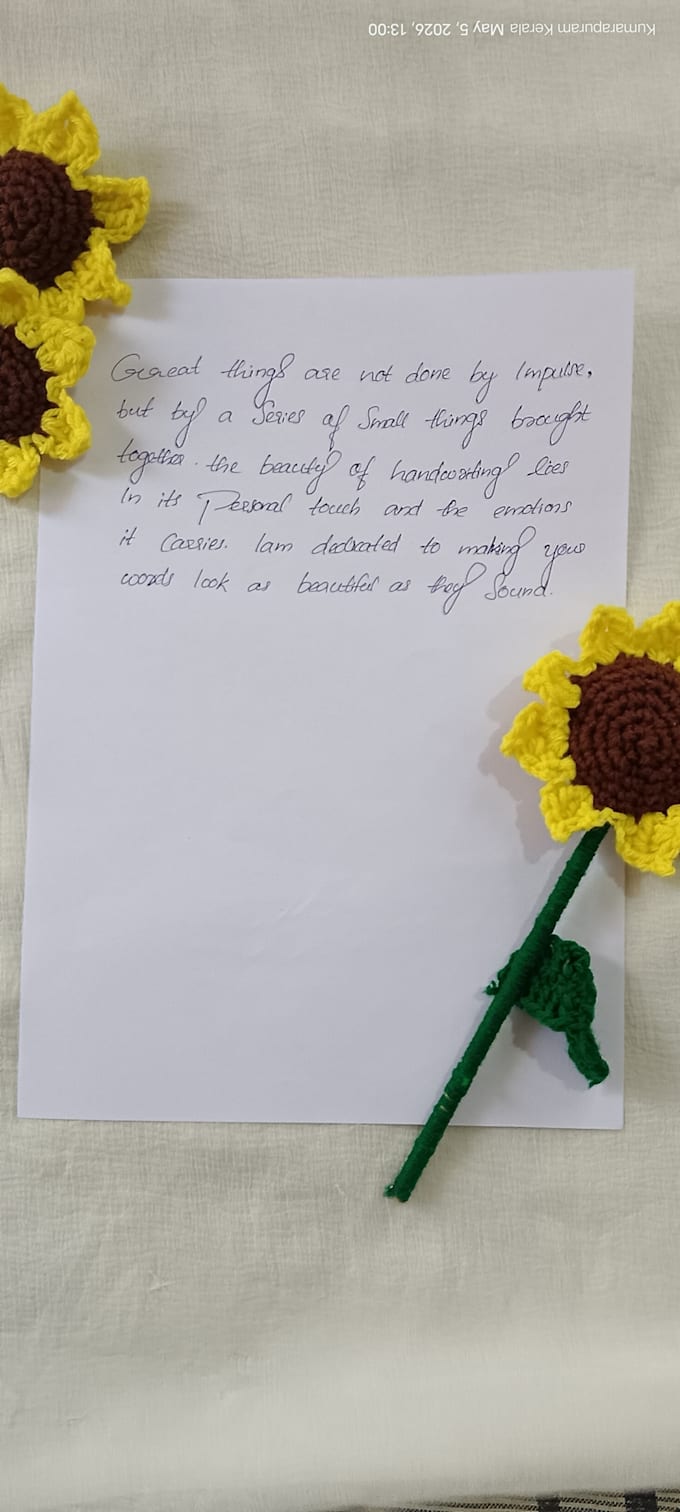 Kumarapuram Kerala May 5, 2026, 13:00
Great things are not done by Impulse,
but by a Series of Small things brought
together. the beauty of handwriting lies
In its Personal touch and the emotions
it Carries. Iam dedicated to making your
words look as beautiful as they Sound.